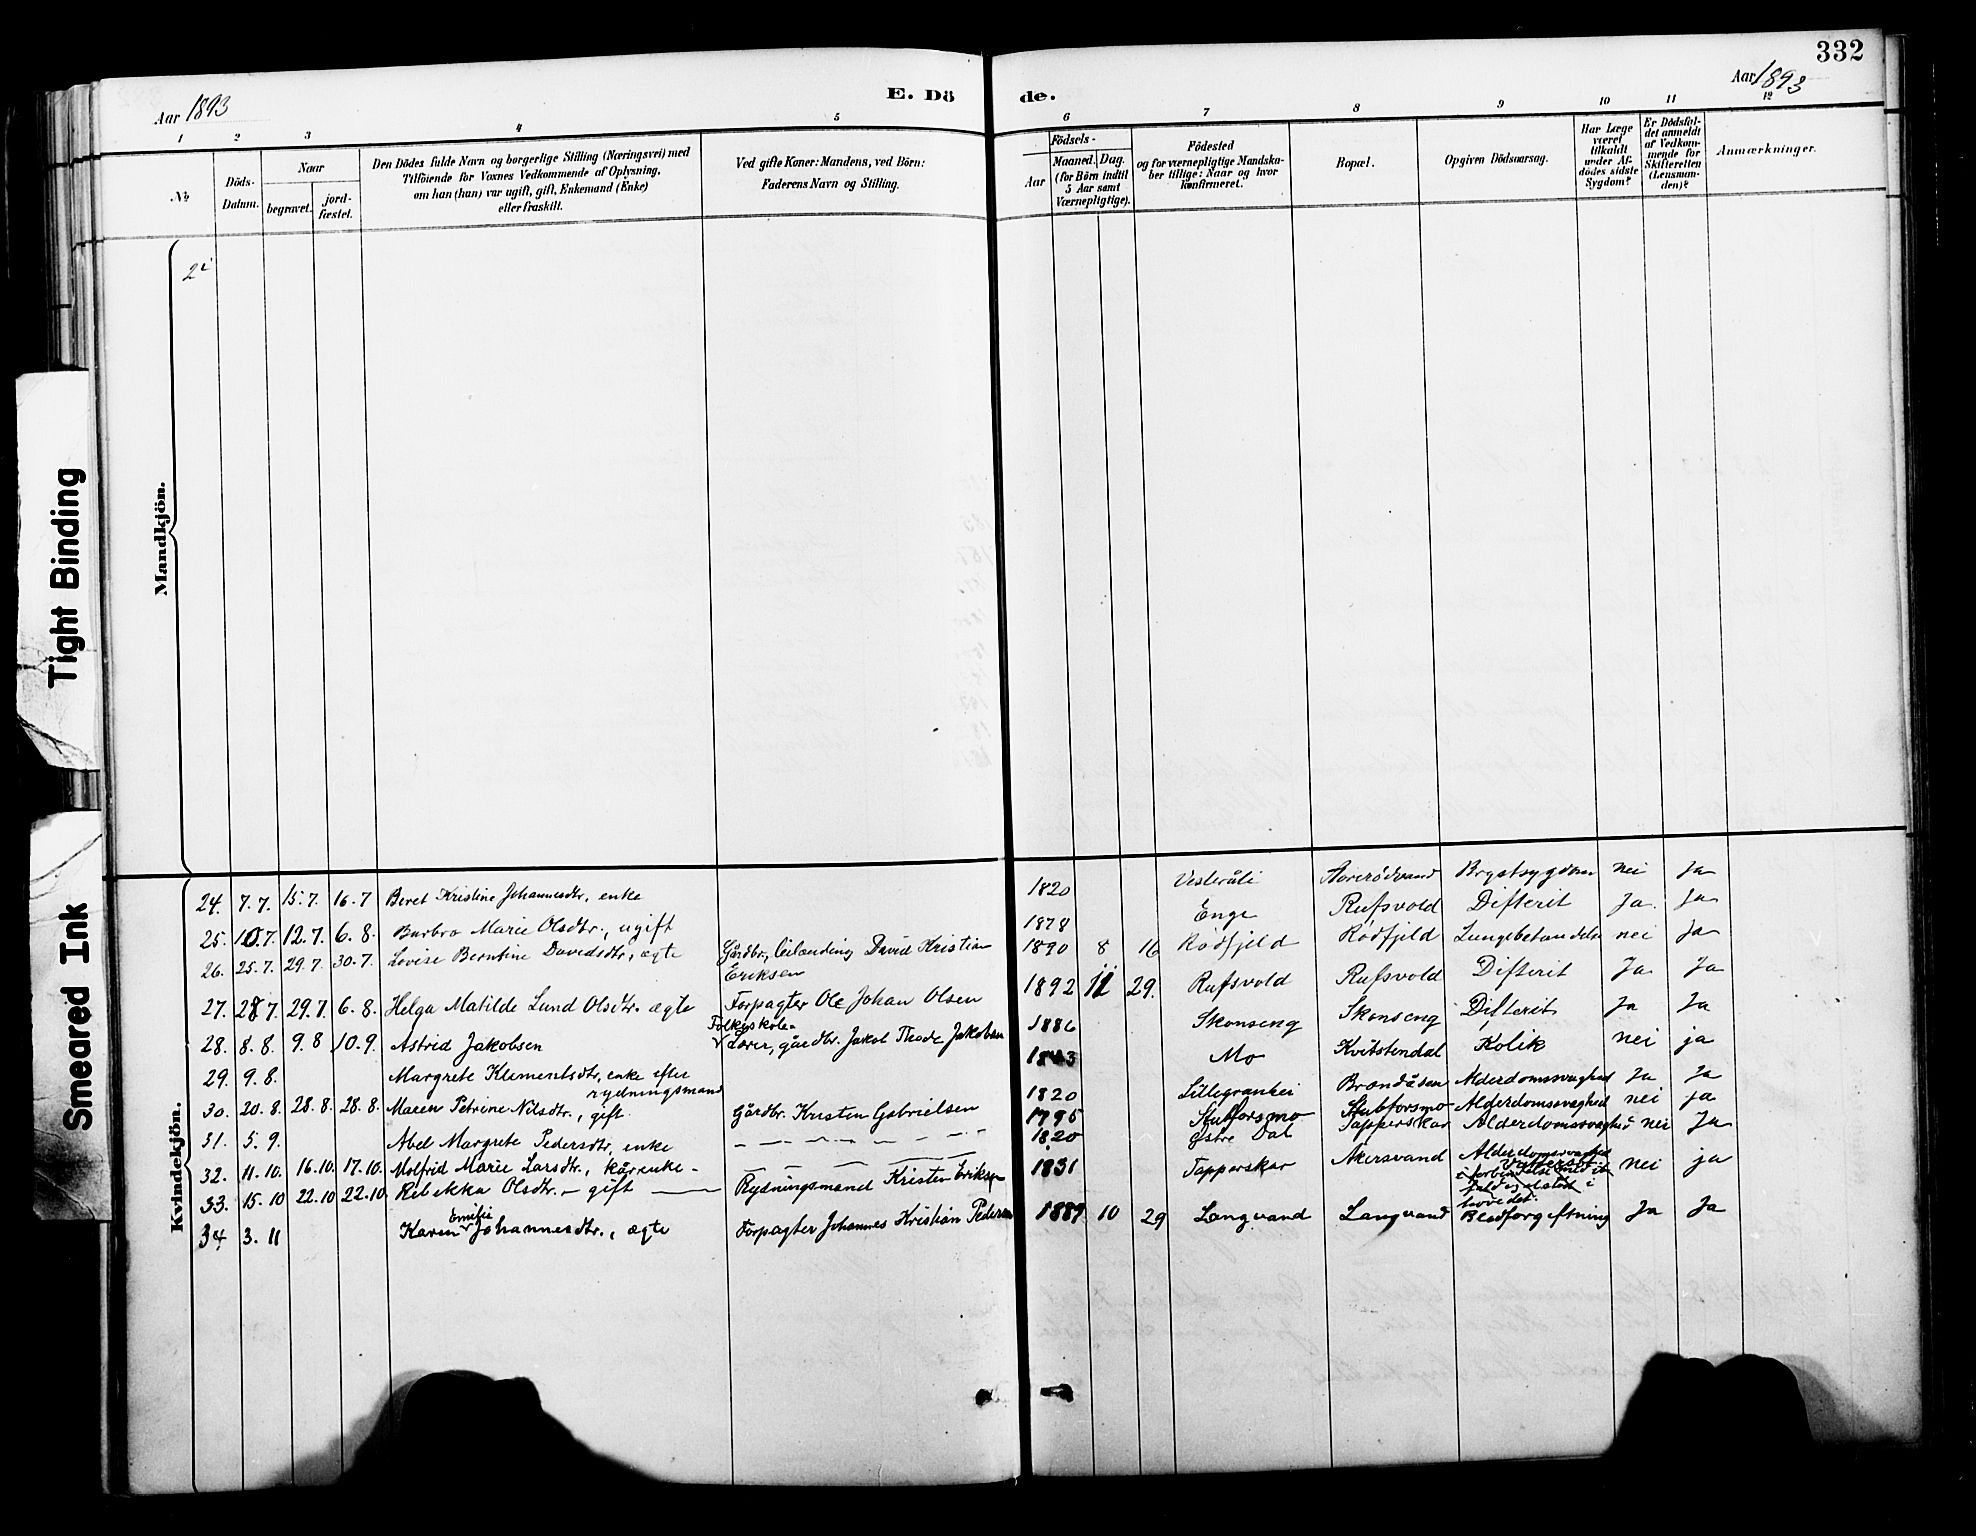 332
Aar 1893
E. Dö
de.
Aar 1893
1 2 3 4 5 6 7 8 9 10 11 12
No
Döds-Datum.
Naar
begravet.
jord-fæstet.
Den Dödes fulde Navn og borgerlige Stilling (Næringsvei) med
Tilföiende for Voxnes Vedkommende af Oplysning,
om han (hun) var ugift, gift, Enkemand (Enke)
eller fraskilt.
Ved gifte Koner: Mandens, ved Börn:
Faderens Navn og Stilling.
Födsels-
Aar
Maaned. Dag.
(for Börn indtil
5 Aar samt
Værnepligtige).
Födested
og for værnepligtige Mandska-
ber tillige: Naar og hvor
konfirmeret.
Bopæl.
Opgiven Dödsaarsag.
Har Læge
været
tilkaldt
under Af-
dödes sidste
Sygdom?
Er Dödsfal-
det anmeldt
af Vedkom-
mende for
Skifteretten
(Lensman-
den)?
Anmærkninger.
Mandkjön.
Tight Binding
Smeared Ink
Kvindekjön.
24. 7.7. 15.7. 16.7 Beret Kristine Johannesdtr., enke 1820 Vesteråli Brystsygdom nei Ja
25. 10.7. 12.7. 6.8. Barbro Marie Olsdtr., ugift 1878 Enge Rufsvold Difterit Ja Ja
26. 25.7. 29.7. 30.7. Lovise Berntine Davidsdtr., ægte Gårdbr., leilending David Kristian 1890 8 16 Rödfjeld Rödfjeld Lungebetændelse nei Ja
Eriksen
27. 28.7. 29.7. 6.8. Helga Matilde Lund Olsdtr. ægte Forpagter Ole Johan Olsen 1892 11 29. Rufsvold Rufsvold Difterit Ja Ja
Folkeskole-
28. 8.8. 9.8 10.9. Astrid Jakobsen Lærer, gårdbr. Jakob Thode Jakobsen 1886 Skonseng Skonseng Difterit Ja Ja
29. 9.8. Margrete Klementsdtr., enke efter Mo Kvitstendal Kolik nei ja
rydningsmand
30. 20.8. 28.8. 28.8. Maren Petrine Nilsdtr., gift Gårdbr. Kristen Gabrielsen 1820 Lillegranhei Brendåsen Alderdomssvaghed Ja Ja
31. 5.9. Abel Margrete Pedersdtr., enke 1795 Stubforsmo Stubforsmo Alderdomssvaghed nei ja
32. 11.10. 16.10. 17.10. Molfrid Marie Larsdtr., kårenke 1820 Östre Dal Tapperskar Alderdomssvaghed nei Ja
33. 15.10 22.10 22.10 Rebekka Olsdtr. gift Rydningsmand Kristen Eriksen 1831 Tapperskar Akersvand Alderdomssvaghed nei ja
i forbindelse med et
fald og slået i
hovedet.
34 3.11 Karen Emilie Johannesdtr., ægte Forpagter Johannes Kristian Pedersen 1889 10 29 Langvand Langvand Blodforgiftning Ja Ja